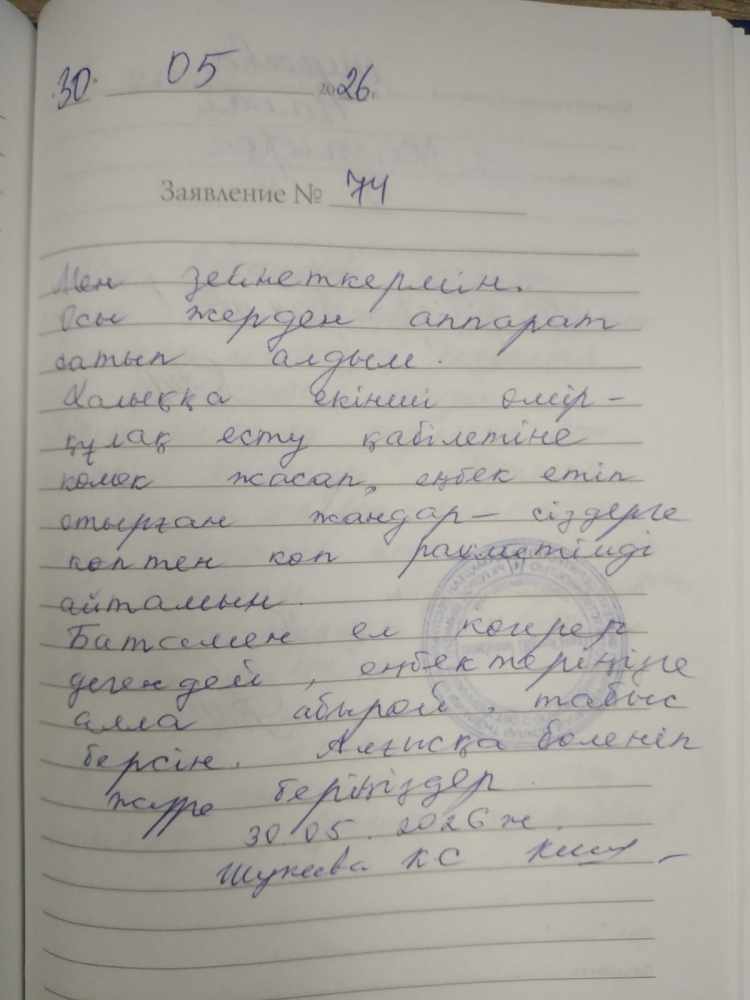 30. 05 2026 г.
Заявление № 74
Мен зейнеткермін.
Осы жерден аппарат
сатып алдым.
Халыққа екінші өмір –
құлақ есту қабілетіне
көмек жасап, еңбек етіп
отырған жандар – сіздерге
көптен көп рахметімді
айтамын.
Батамен ел көгерер
дегендей, еңбектеріңізге
алла абырой, табыс
берсін. Алғысқа бөленіп
жүре беріңіздер.
30.05.2026 ж.
Шукеева КС